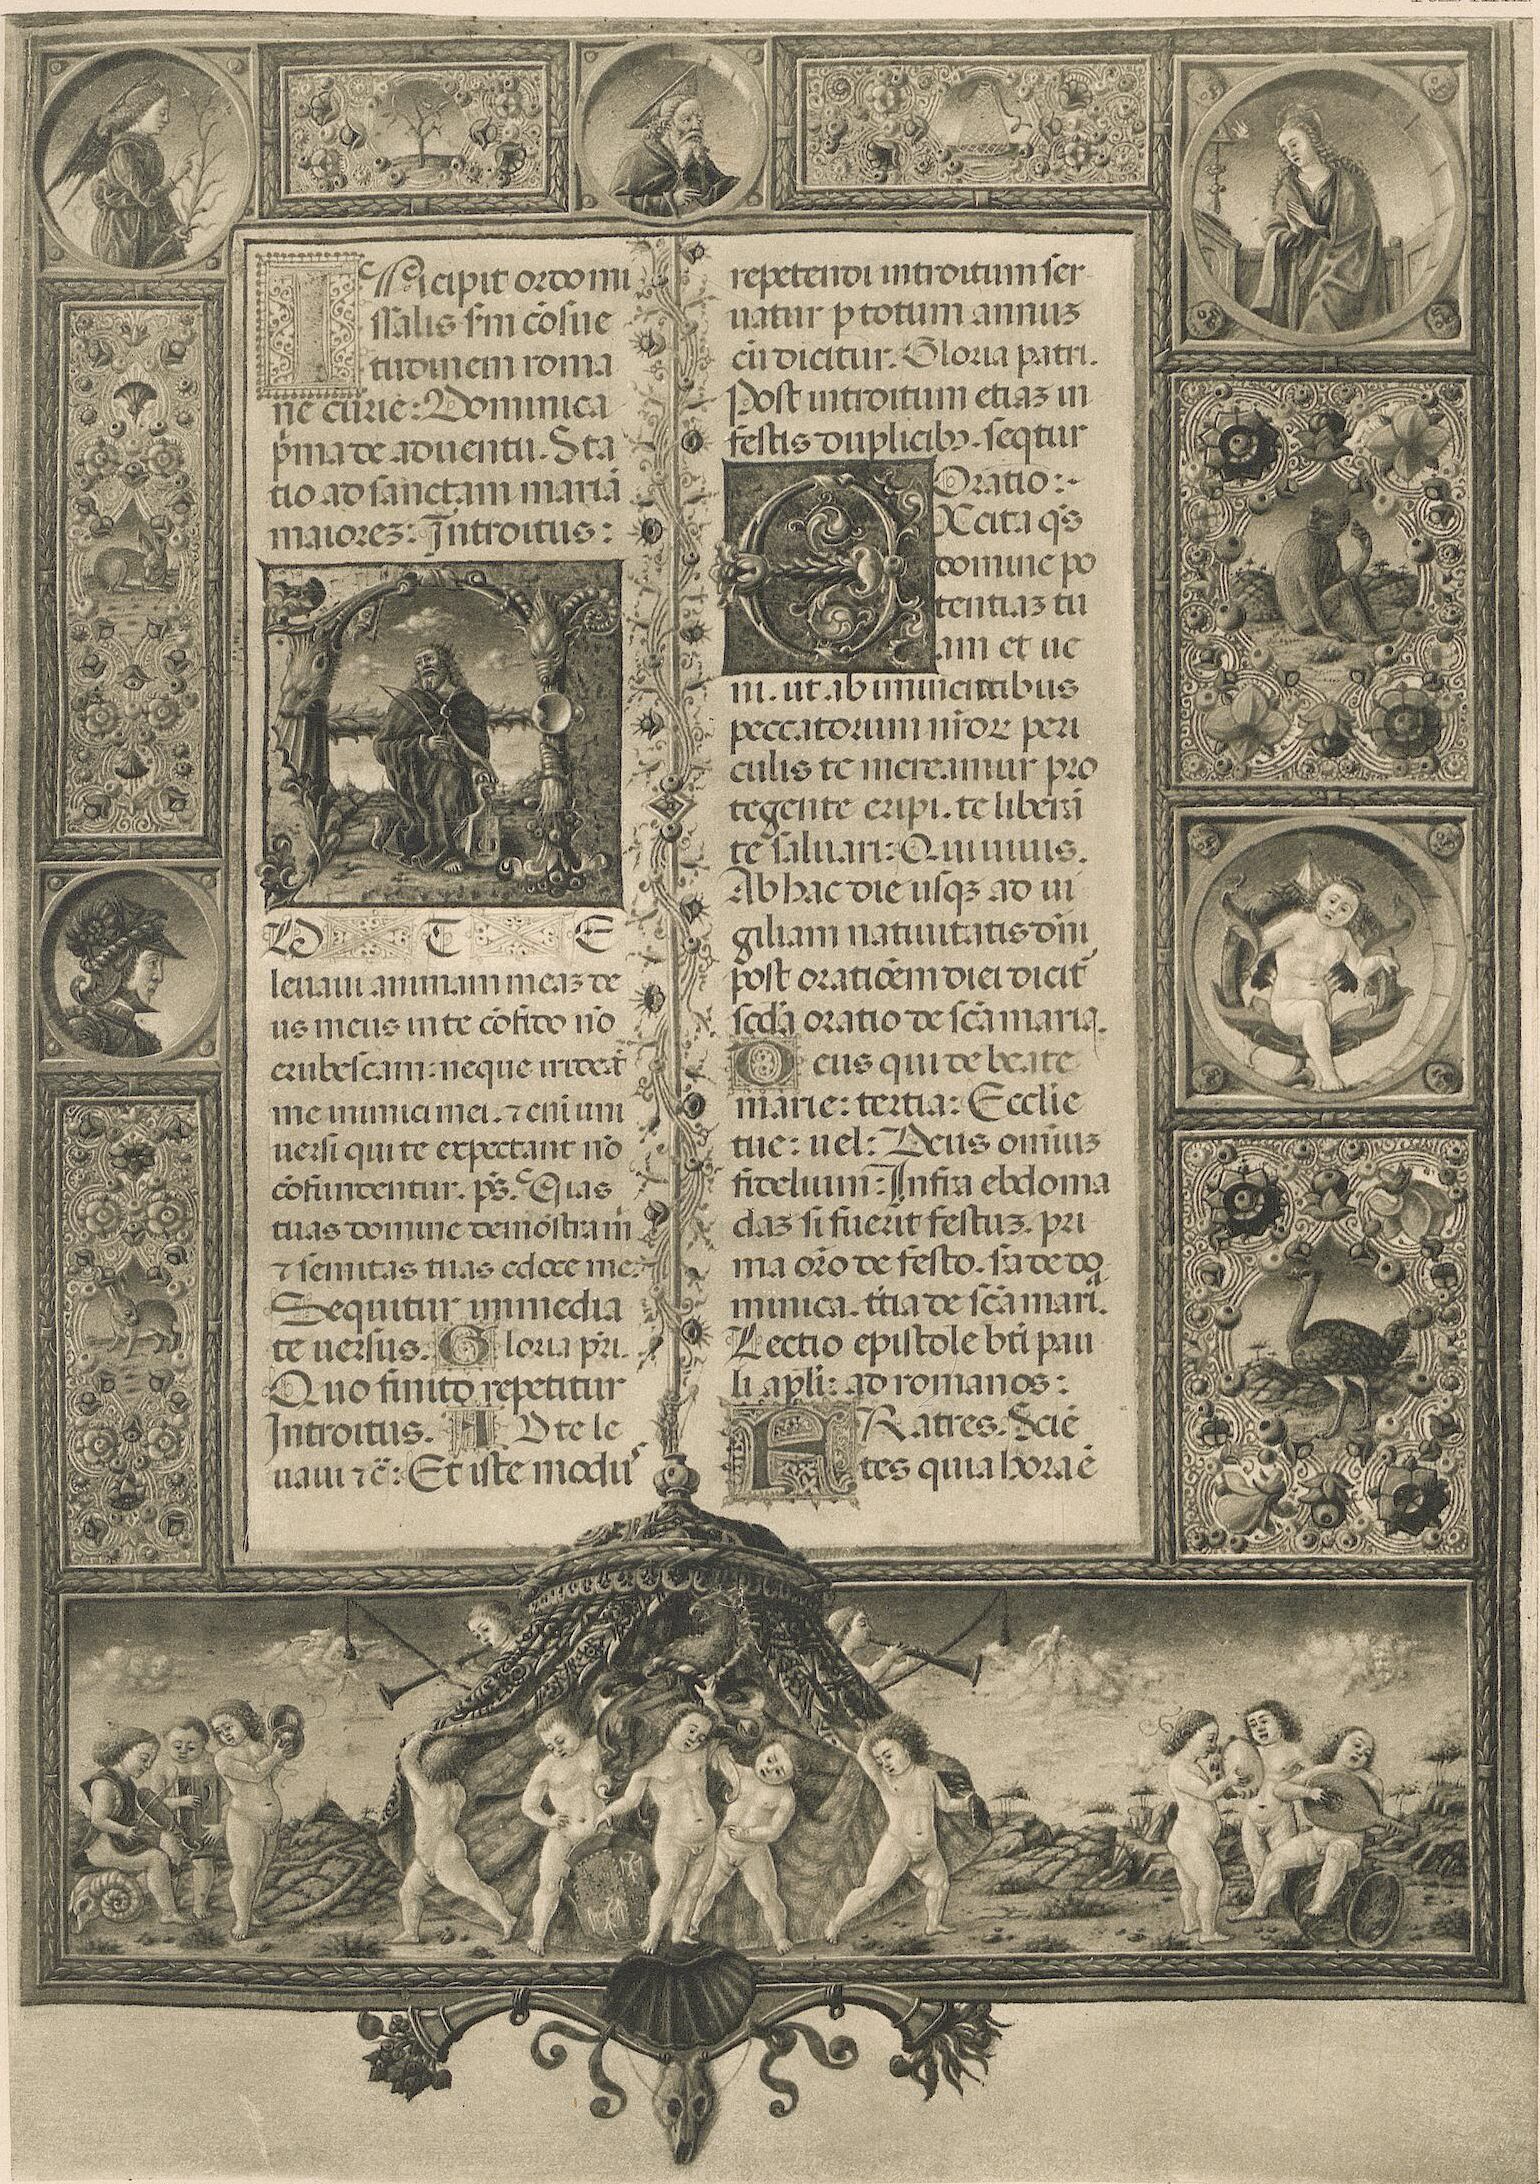 Incipit ordo mi
ssalis s̄m cōsue
tudinem roma
ne curie: Dominica
p̄ma de aduentu. Sta
tio ad sanctam mariā
maiorez: Introitus:
A
D T E
leuaui animam meaz de
us meus in te cōfido nō
erubescam: neque irrideāt
me inimici mei. ⁊ enī uni
uersi qui te expectant nō
cōfundentur. p̄s. Uias
tuas domine demōstra m̄
⁊ semitas tuas edoce me.
Sequitur immedia
te uersus. Gloria p̄ri.
Quo finito repetitur
Introitus. AD te le
uaui ⁊c̄: Et iste modus
repetendi introitum ser
uatur p totum annuz
cū dicitur. Gloria patri.
Post introitum etiaz in
festis duplicibꝫ. seqtur
Oratio:
EXcita q̄s
domine po
tentiaz tu
am et ue
ni. ut ab imminentibus
peccatorum nr̄oꝝ peri
culis te mereamur pro
tegente eripi. te liberā
te saluari: Qui uiuis.
Ab hac die usqꝫ ad ui
giliam natiuitatis dn̄i
post oratiōem diei dicit̄
scd̄a oratio de sc̄a maria.
Deus qui de beate
marie: tertia: Ecclie
tue: uel: Deus omniuz
fidelium: Infra ebdoma
daz si fuerit festuz. pri
ma or̄o de festo. s̄a de do
minica. t̄tia de sc̄a maria.
Lectio epistole bt̄i pau
li apl̄i: ad romanos:
FRatres. Sciē
tes quia hora ē